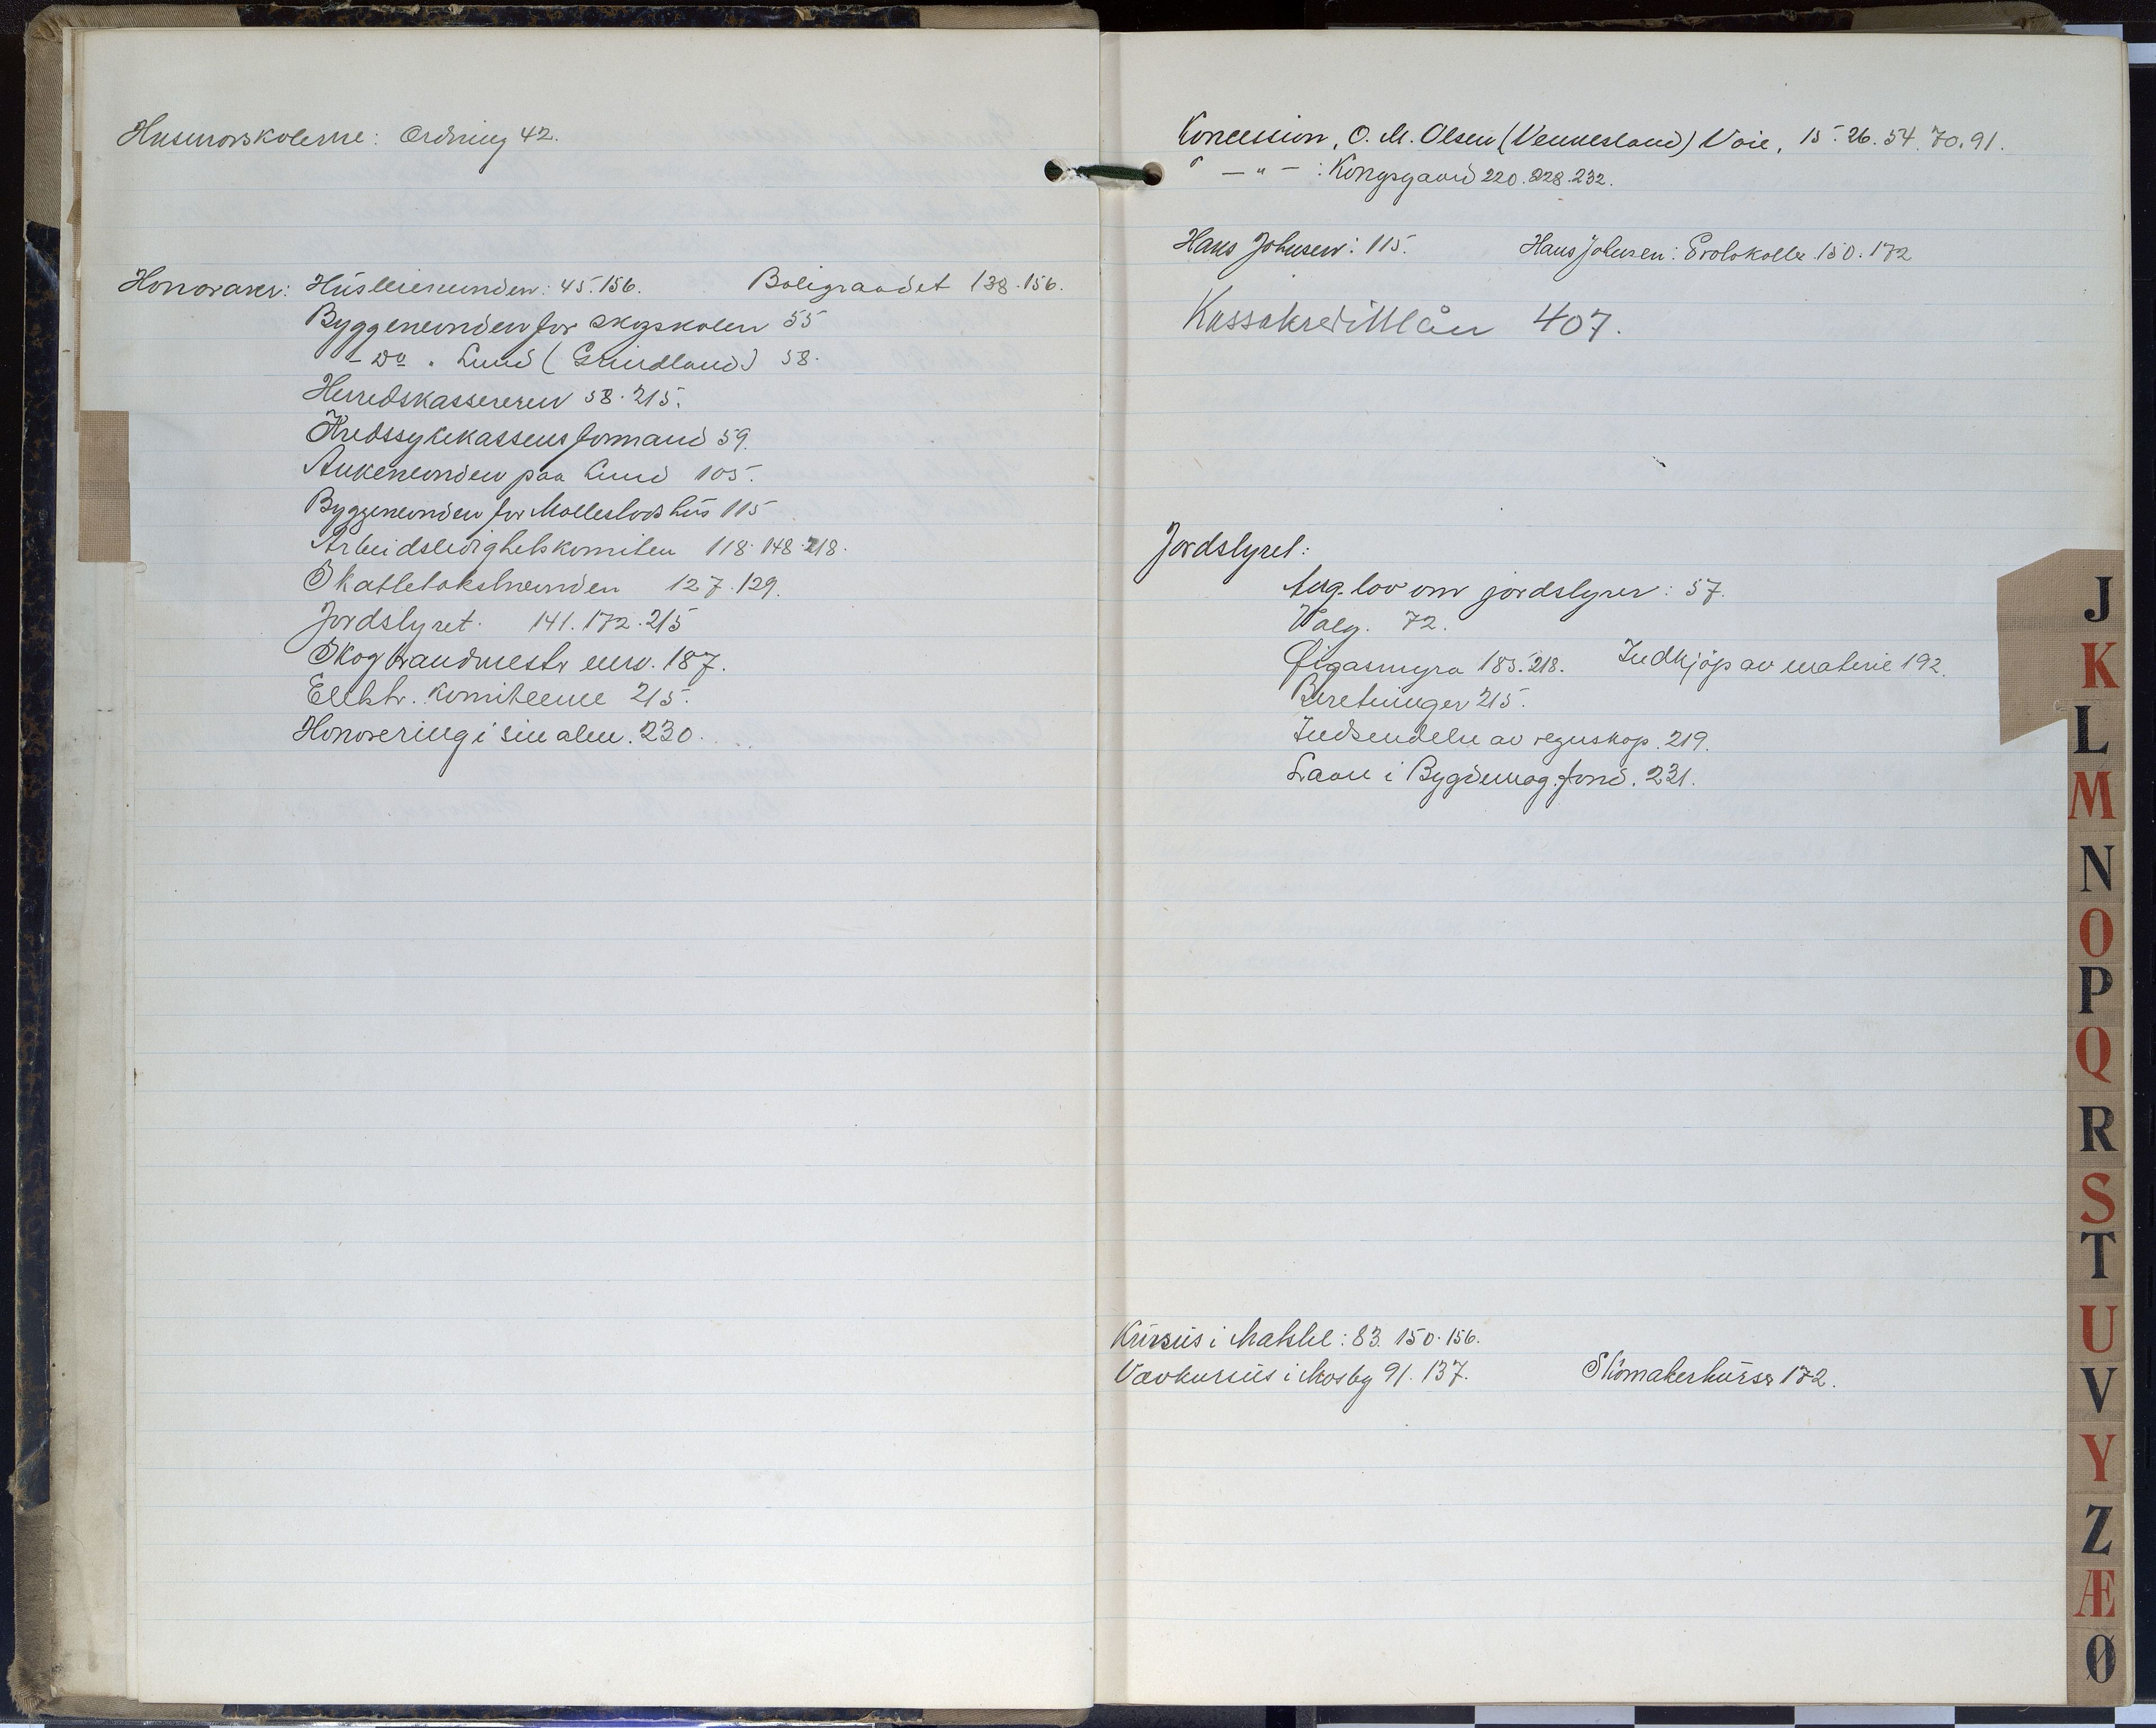 Husmorskolerne: Ordning 42.
Honorarer: Husleienevnden: 45. 156. Boligraadet 138. 156.
Byggenevnden for skogskolen 55
- Do . Lund (Grindland) 58.
Herredskassereren 58. 215.
Kredssykekassens formand 59.
Ankenevnden paa Lund 105.
Byggenevnden for Molleslods hus 115
Arbeidsledighetskomiteen 118. 148. 218.
Skattetakstnevnden 127. 129.
Jordstyret. 141. 172. 215
Skogbrandmestr 187.
Elektr. komiteene 215.
Honorering i sin alm. 230.
Koncession, O. M. Olsen (Vennesland) Voie, 15. 26. 54. 70. 91.
— " — : Kongsgaard 220. 228. 232.
Hans Johnsen: 115. Hans Johnsen: Protokoller 150. 172
Kassakredittlån 407.
Jordstyret:
Ang. lov om jordstyrer: 57.
Valg. 72.
183. 218. Indkjöp av materie 192.
Beretninger 215.
Indsendelse av regnskap. 219.
Laan i Bygdemag. fond. 231.
Kursus i Matstel: 83. 150. 156.
Vævkursus i Mosby 91. 137. Skomakerkurser 172.
J
K
L
M
N
O
P
Q
R
S
T
U
V
Y
Z
Æ
Ø